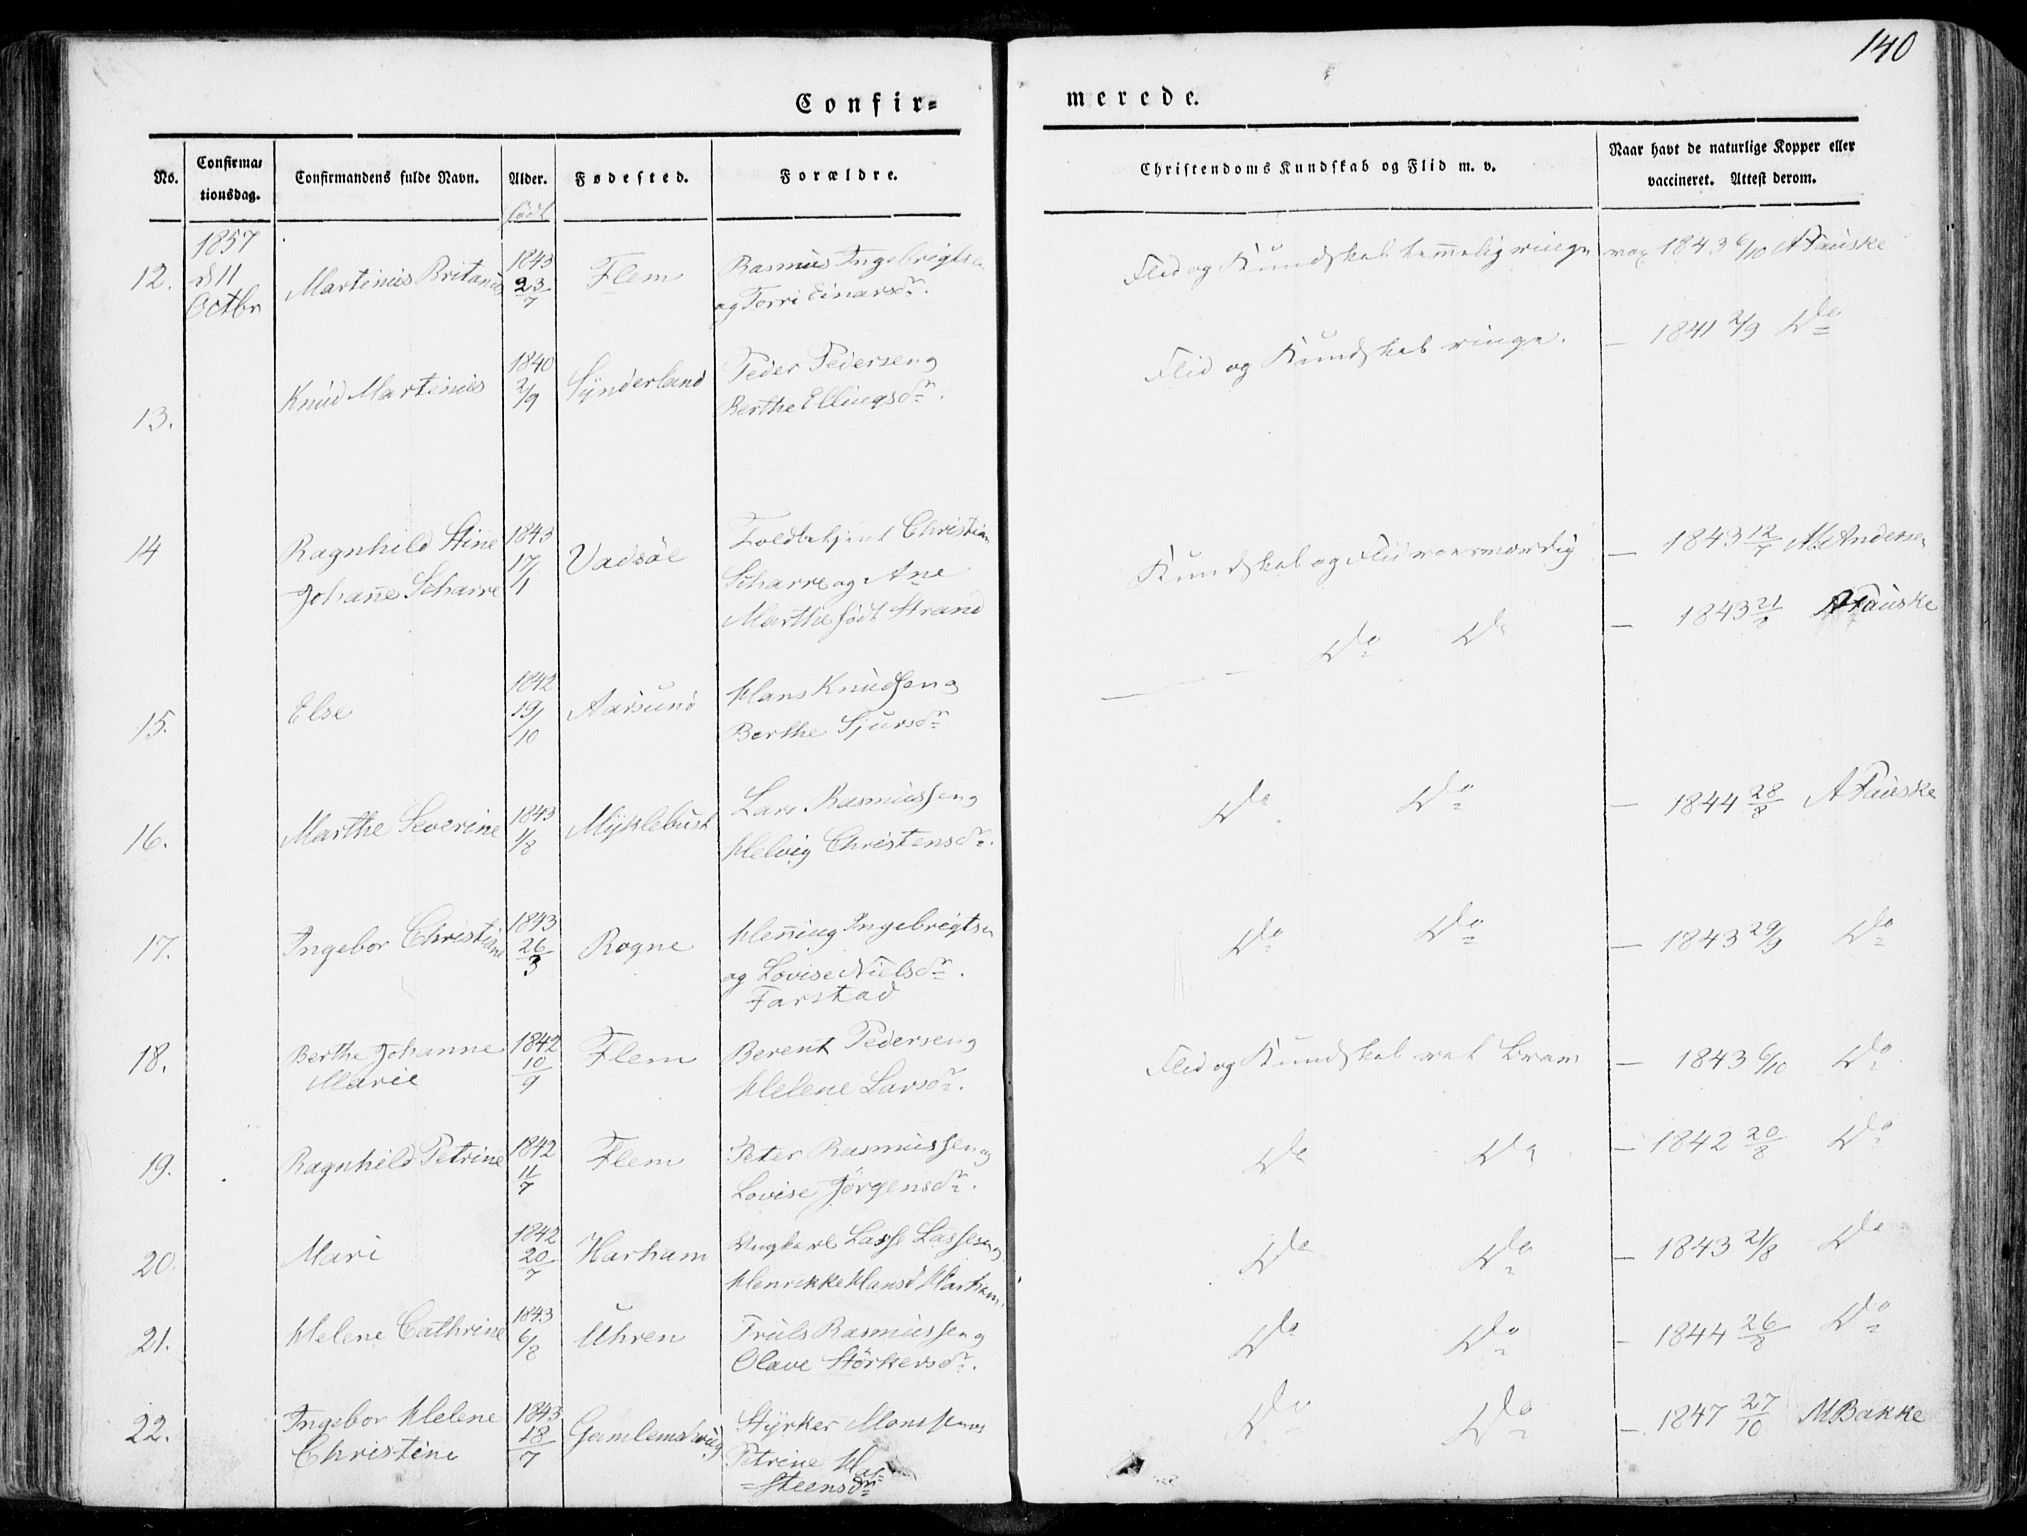 140
Confir=
merede.
No.
Confirma=
tionsdag.
Confirmandens fulde Navn.
Alder.
født
Fødested.
Forældre.
Christendoms Kundskab og Flid m. v.
Naar havt de naturlige Kopper eller
vaccineret. Attest derom.
12.
1857
d 11
Octbr
Martinus Britanus
1843
23/7
Flem
Rasmus Ingebrigtsen
og Torri Einarsdr.
Flid og Kundskab temmelig ringe
vax 1843 6/10 A Fauske
13.
Knud Martinus
1840
2/9
Synderland
Peder Pedersen og
Berthe Ellingsdr.
Flid og Kundskab ringe.
— 1841 2/9 Do
14
Ragnhild Stine
Johanne Scharre
1843
17/1
Vadsöe
Toldbetjent Christian
Scharre og Ane
Marthe født Strand
Kundskab og Flid
— 1843 12/7 M Andersen
15.
Else
1842
19/10
Aarsund
Hans Knudsen og
Berthe Sjursdr
Do Do
— 1843 21/8 A Fauske
16.
Marthe Severine
1843
1/8
Myklebust
Lars Rasmussen og
Helvig Christensdr.
Do Do
— 1844 28/8 A Fauske
17.
Ingebor Christiane
1843
26/3
Rogne
Henning Ingebrigtsen
og Lovise Nielsdr.
Farstad
Do Do
— 1843 29/9 Do
18.
Berthe Johanne
Marie
1842
10/9
Flem
Berent Pedersen og
Helene Larsdr.
Flid og Kundskab ret
— 1843 6/10 Do
19.
Ragnhild Petrine
1842
11/7
Flem
Peter Rasmussen og
Lovise Jørgensdr.
Do Do
— 1842 20/8 Do
20.
Mari
1842
20/7
Harham
Ungkarl Lasse Lassesen og
Henrikke Hansd Harham.
Do Do
— 1843 21/8 Do
21.
Helene Cathrine
1843
6/8
Uhren
Truls Rasmussen og
Olave Størkersdr.
Do Do
— 1844 26/8 Do
22.
Ingebor Helene
Christine
1843
18/7
Gamlemshoug
Styrker Monssen og
Petrine Hal
=steensdr
Do Do
— 1847 27/10 M Bakke